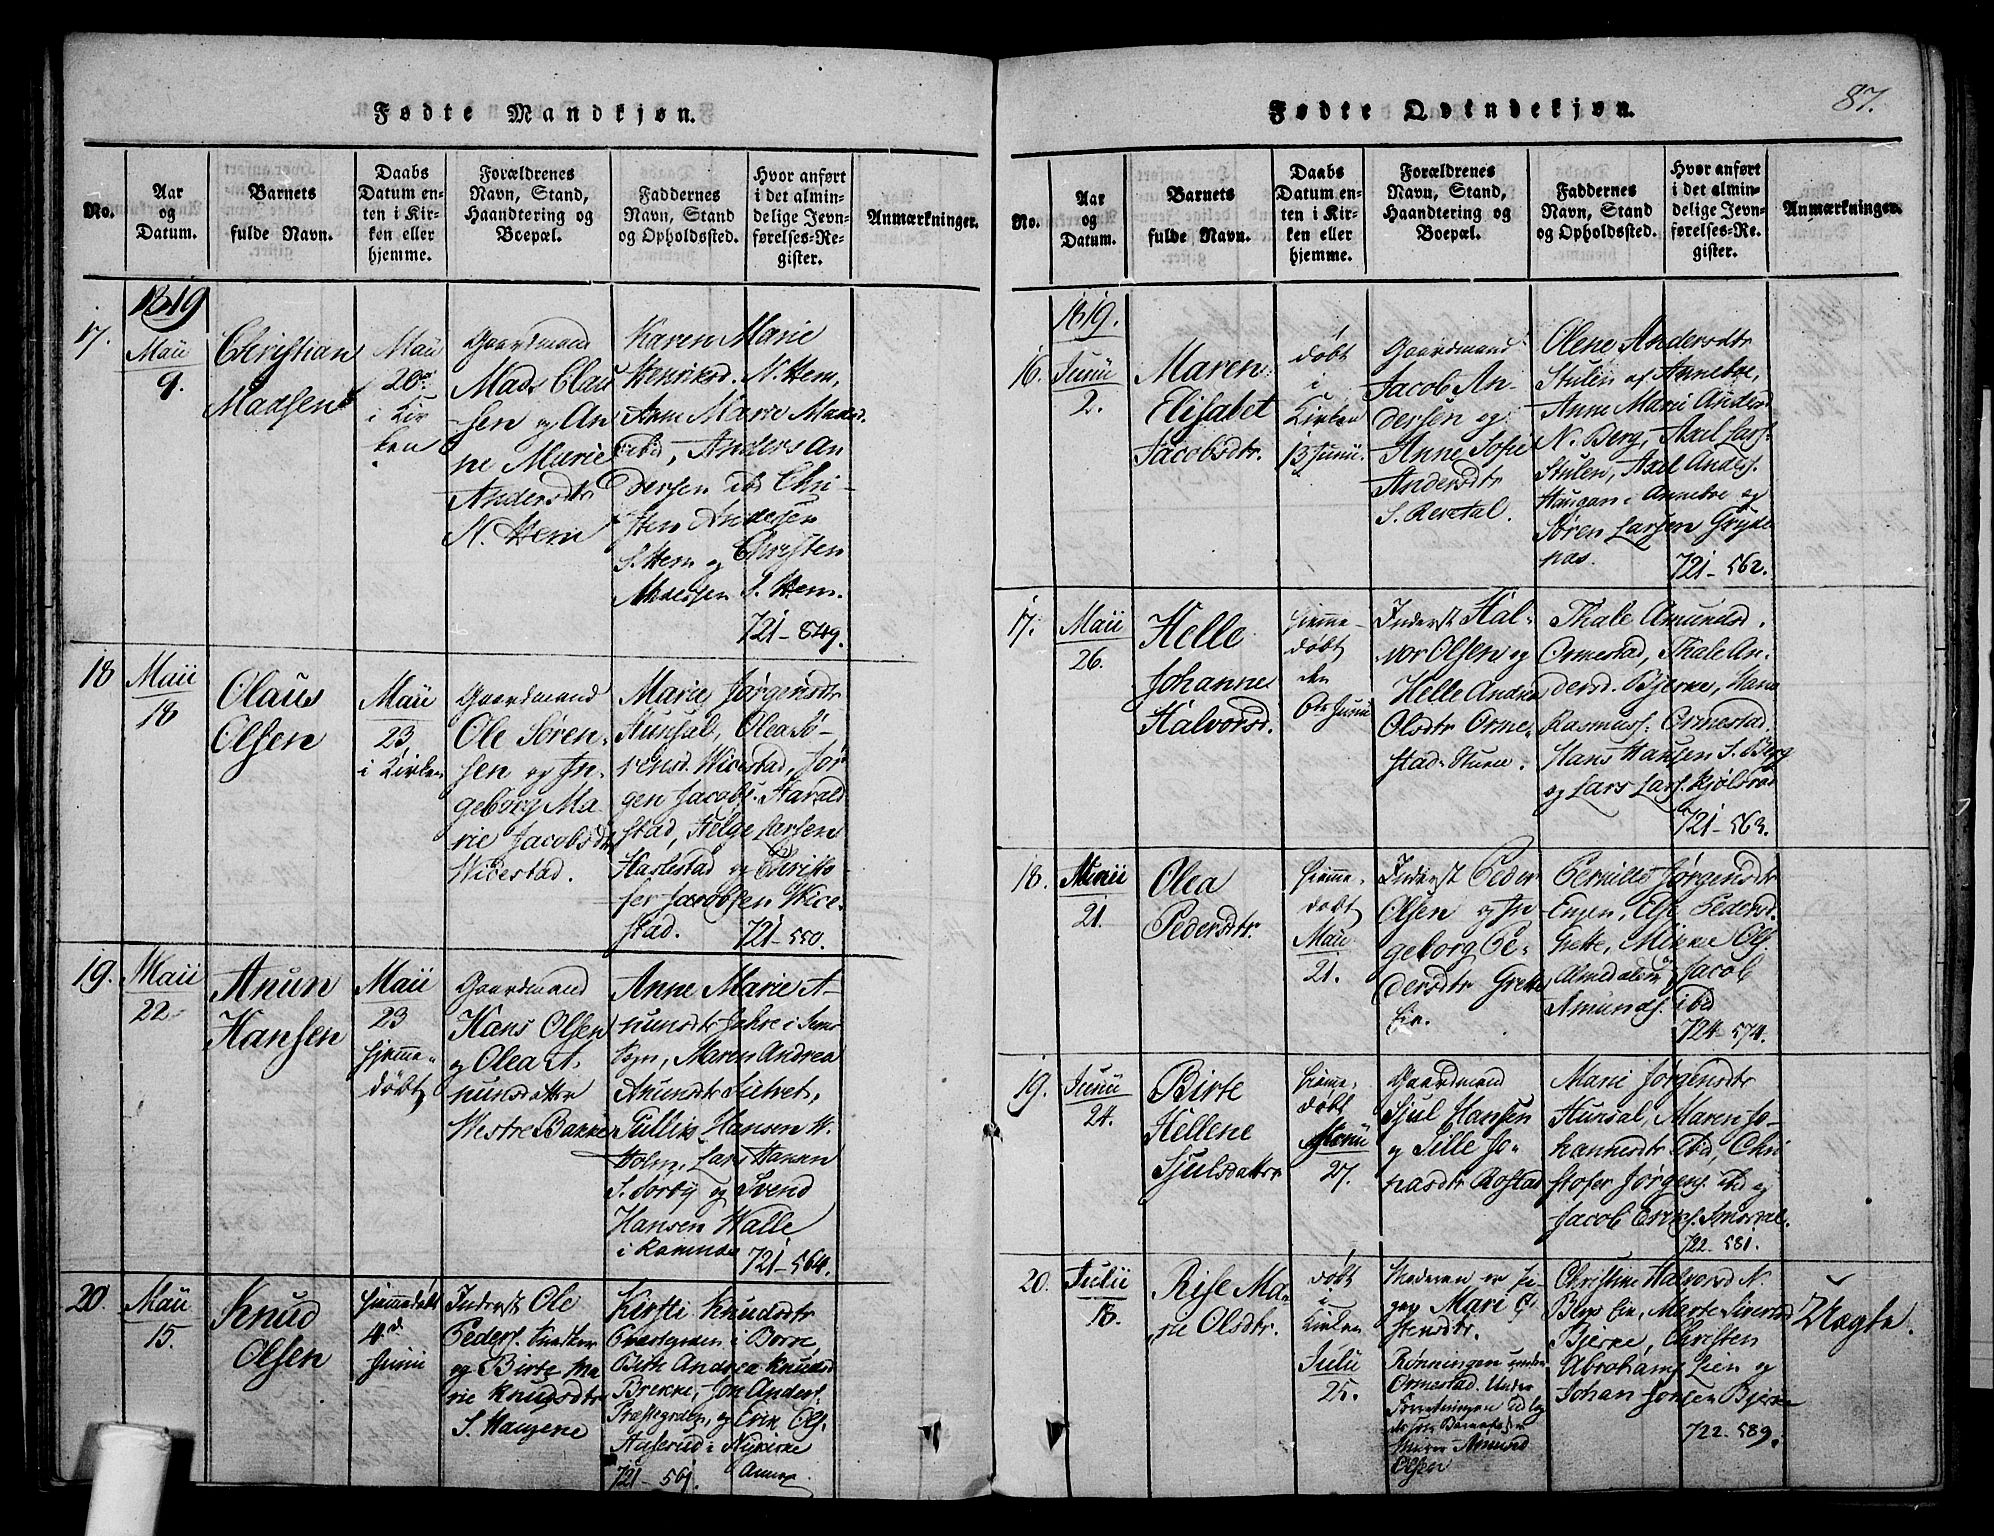 Fødte Mandkjøn.
No.
Aar
og
Datum.
Barnets
fulde Navn.
Daabs
Datum en-
ten i Kir-
ken eller
hjemme.
Forældrenes
Navn, Stand,
Haandtering og
Boepæl.
Faddernes
Navn, Stand
og Opholdssted.
Hvor anført
i det almin-
delige Jevn-
førelses-Re-
gister.
Anmærkninger.
17.
1819
Maii
9.
Christian
Madsen
Maii
20de
i Kir
ken
Gaardmand
Mads Clau
sen og An
ne Marie
Andersdtr
N. Hem
Karen Marie
Henriksd. N. Hem,
Ann Marie Madsd.
ibid, Anders An
dersen ibd Chri-
sten Andersen
S. Hem og Christen
Madsen S. Hem.
721-549.
18
Maii
18
Olaus
Olsen
Maii
23
i Kirken
Gaardmand
Ole Søren-
sen og In-
geborg Ma-
rie Jacobsdtr
Wivestad.
Marie Jørgensdtr
Hunsal, Olea Sø-
rensd. Wivestad, Jør
gen Jacobs. Harald
stad, Helge Larsen
Haslestad og Christo-
fer Jacobsen Wive-
stad.
721-550.
19.
Maii
22
Anun
Hansen
Maii
23
hjemme-
døbt
Gaardmand
Hans Olsen
og Olea A-
nunsdatter
Westre Bakke
Anne Marie A-
nunsdtr Fehre i Sems
Sogn, Maren Andrea
Anunsdtr
Gullik Hansen W.
Holm, Lars Hansen
S. Sørby og Svend
Hansen Walle
i Ramnæs
721-564.
20.
Maii
15.
Knud
Olsen
Hjemmedøbt
4d
Junii
Inderst Ole
Peders.
og Birte Ma
rie Knudsdtr
S. Haugene
Kirsti Knudsdtr
Præstegrden i Borre,
Birth Andrea Knudsd
Brekke, Jon Anders.
Præstegrden, og Erik Ols.
Aaserud i Nykirke
Annex
721-561.
87.
Fødte Qvindekjøn.
No.
Aar
og
Datum.
Barnets
fulde Navn.
Daabs
Datum en-
ten i Kir-
ken eller
hjemme.
Forældrenes
Navn, Stand,
Haandtering og
Boepæl.
Faddernes
Navn, Stand
og Opholdssted.
Hvor anført
i det almin-
delige Jevn-
førelses-Re-
gister.
Anmærkninger.
16.
1819.
Junii
2.
Maren
Elisabet
Jacobsdtr.
døbt
i
Kirken
13 Junii.
Gaardmand
Jacob An-
dersen og
Anne Sofie
Andersdtr
S. Revetal.
Olene Andersdtr
Stulen af Annebue,
Anne Marie Andersd
N. Berg, Axel Lars.
Stulen, Axel Anders.
Haugan i Annebue og
Søren Larsen Gryde
næs.
721-562.
17.
Maii
26.
Helle
Johanne
Halvorsd.
Hiemme-
døbt
den
6te Junii
Inderst Hal-
vor Olsen og
Helle Andrea
Olsdtr Orme-
stad
Thale Amundsd.
Ormestad, Thale An-
dersd. Bjerke, Hans
Rasmuss. Ormestad.
Hans Hansen S. Berg
og Lars Lars. Kjølsrød
721-563.
18.
Maii
21.
Olea
Pedersdtr.
Hiemme-
døbt
Maii
21.
Inderst Peder
Olsen og In-
geborg Pe-
dersdtr Grette
Eie.
Pernille Jørgensdtr
Engen, Else Pedersd.
Grette, Mikkel Ols.
Almedalen, Jacob
Amunds. ibid
724-574.
19.
Junii
24.
Birte
Hellene
Sjulsdatter
Hiemme-
døbt
Junii
27.
Gaardmand
Sjul Hansen
og Sille Jo-
hasdtr Rostad
Marie Jørgensdtr
Hunsal, Maren Jo-
hannesdtr Ibid, Chri
stofer Jørgens. Ibid og
Jacob Eriks.
722-581.
20.
Julii
18.
Rise Ma-
rie Olsdtr.
døbt
i
Kirken
Julii
25.
Moderen er Pi-
gen Mari Ø-
stensdtr.
Rønningen under
Ormestad. Under
Forretningen udlag
des som Barnefader
Amund
Olsen
Christine Halvorsd N.
Berg Eie, Marte Siversd
Bjerke, Christen
Abrahams. Lien og
Johan Jonsen Bjerke
722-589.
Uægte.